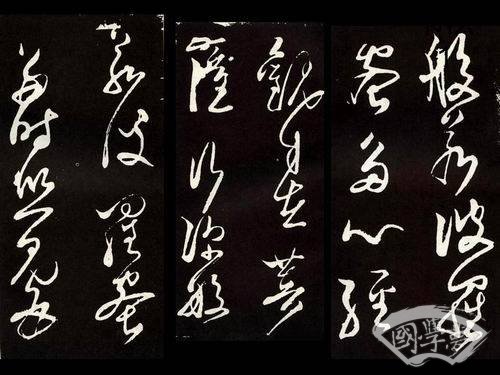 般若波羅
蜜多心經
觀自在菩
薩行深般
若波羅蜜
多時照見五
國學夢